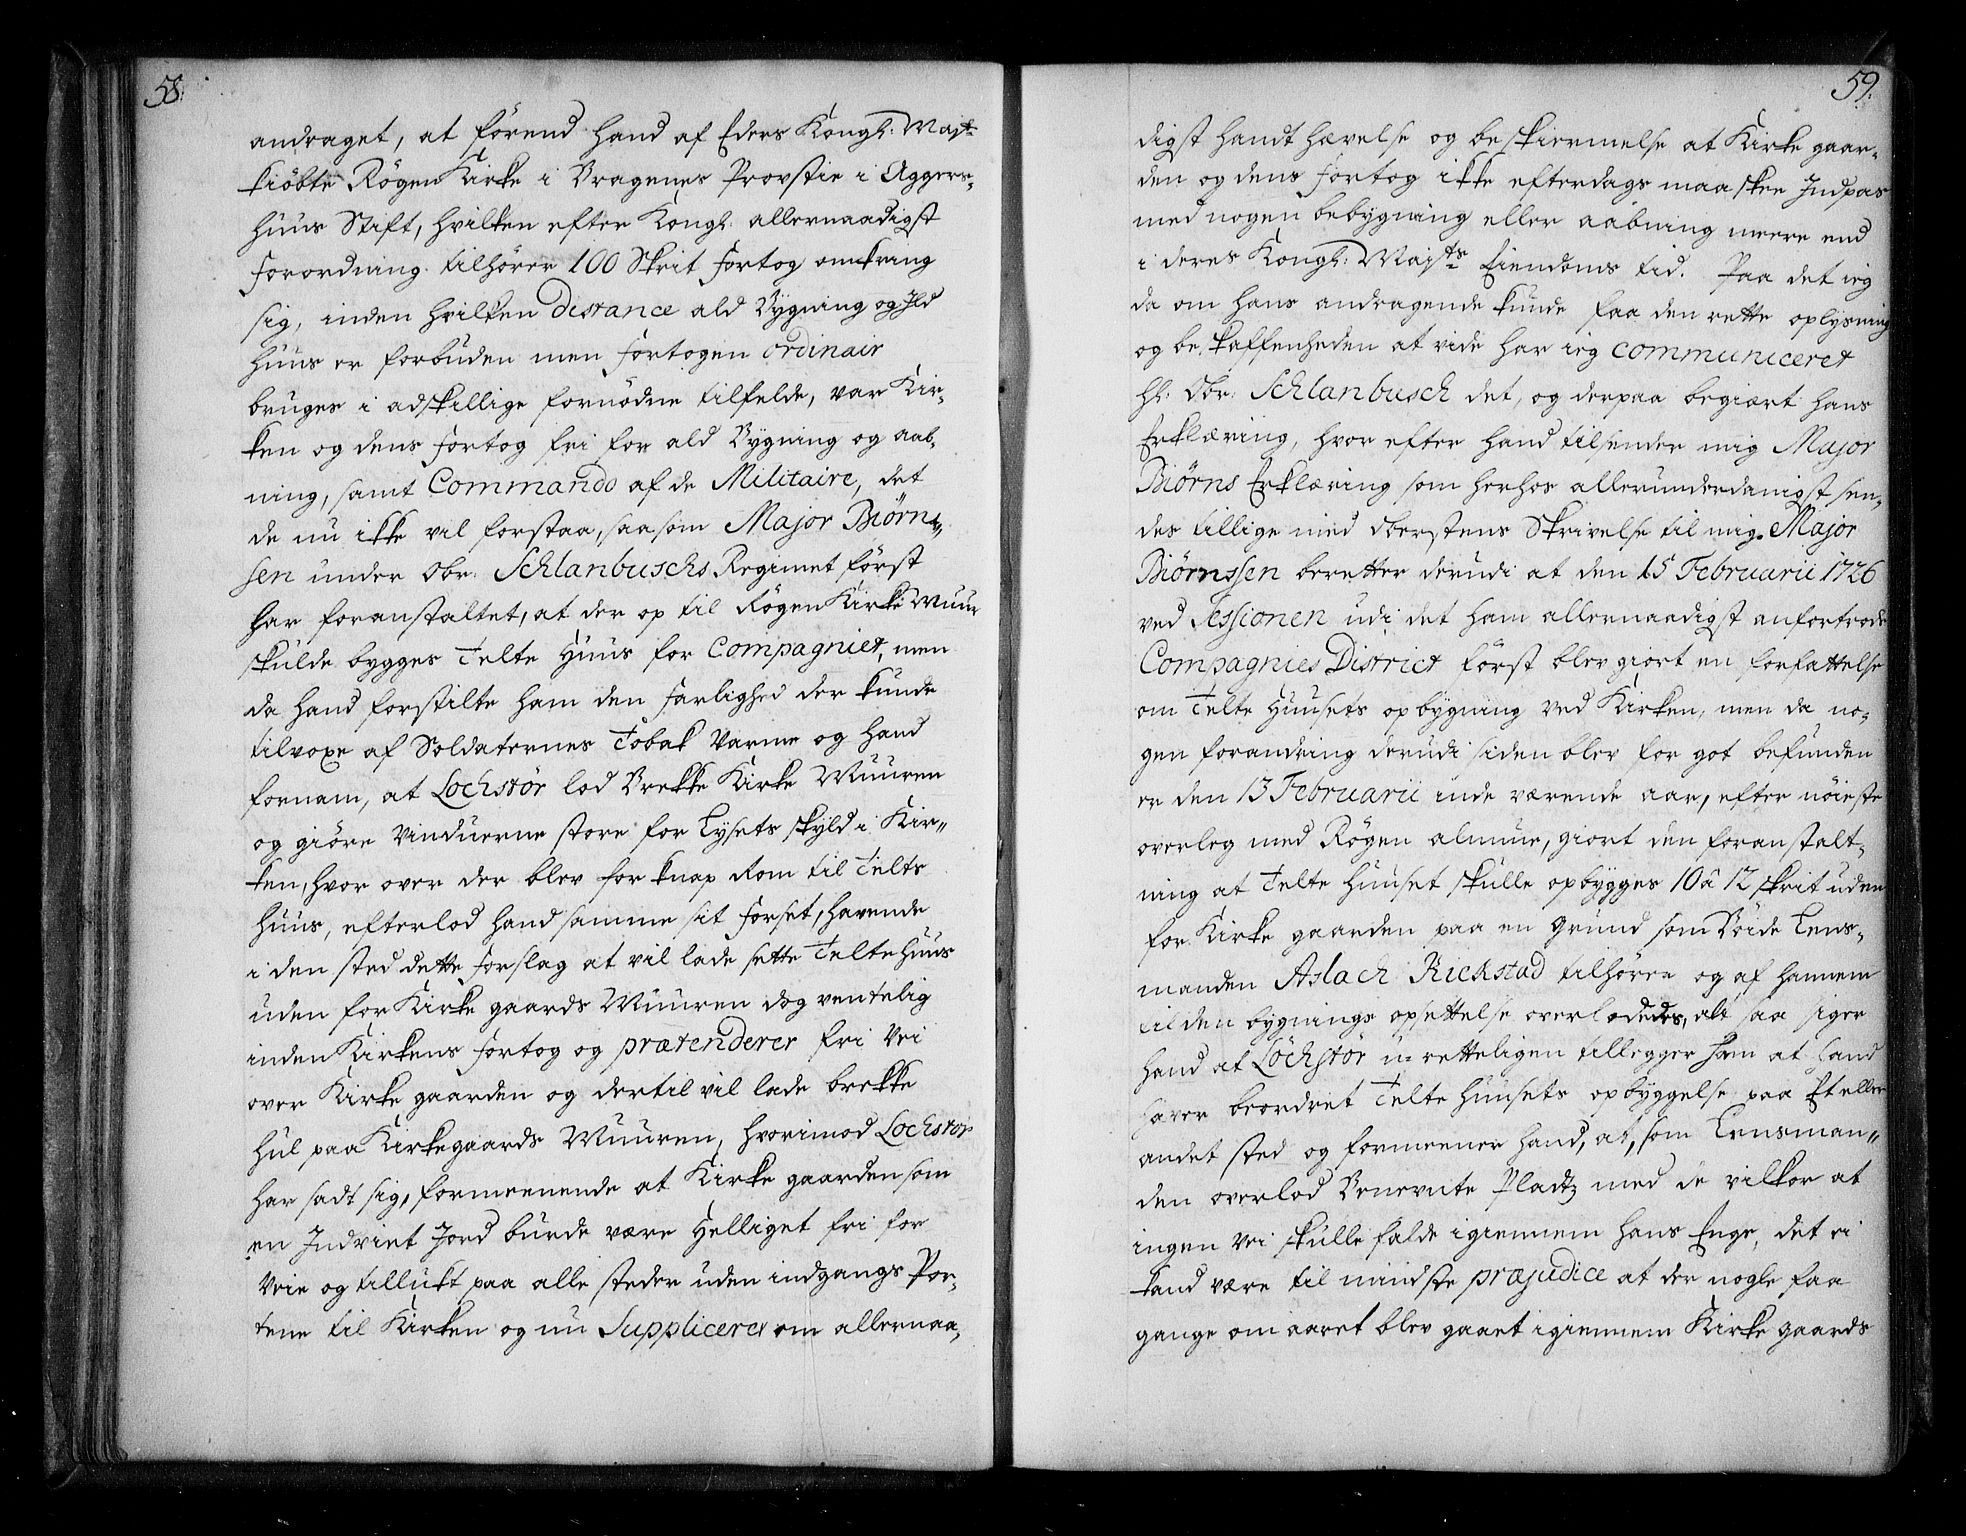 58.
andraget, at førend hand af Eders Kongl: Majt
kiøbte Røgen Kirke i Bragenes Provstie i Aggers-
huus Stift, hvilken efter Kongl. allernaadigst
Forordning tilhører 100 Skrit Fortog omkring
sig, inden hvilken Distance ald Bygning og Ild
huus er forbuden men Fortogen ordinair
bruges i adskillige fornødne tilfelde, var Kir-
ken og dens Fortog fri for ald Bygning og aab-
ning, samt Commando af de Militaire, det
de nu ikke vil forstaa, saasom Major Biørn-
sen under Obr: Schlanbuschs Regimet først
har foranstaltet, at der op til Røgen Kirke Muur
skulde bygges Telte Huus for Compagniet, men
da hand forstilte ham den farlighed der kunde
tilvoxe af Soldaternes Tobak Varme og hand
fornam, at Lochstør lod Brekke Kirke Muuren
og giøre Vinduerne store for Lysets skyld i Kir-
ken, hvor over der blev for knap Rom til Telte
huus, efterlod hand samme sit Forset, havende
i den sted dette Forslag at vil lade sette Telte huus
uden for Kirke gaards Muuren dog ventelig
inden Kirkens Fortog og prætenderer fri Vei
over Kirke gaarden og dertil vil lade brekke
hul paa Kirkegaards Muuren, hvorimod Lochstør
har sadt sig, formeenende at Kirke gaarden som
en Indviet Jord burde være Helliget fri for
Veie og tillukt paa alle steder uden indgangs Por-
tene til Kirken og nu Supplicerer om allernaa-
59.
digst handthævelse og beskiermelse at Kirke gaar-
den og dens Fortog ikke efterdags maa skee Indpas
med nogen bebygning eller aabning meere end
i deres Kongl: Majts Eiendoms tid. Paa det ieg
da om hans andragende kunde faa den rette oplysning
og beskaffenheden at vide har ieg communiceret
Hl: Obr: Schlanbusch det, og derpaa begiært hans
Erklæring, hvor efter hand tilsender mig Major
Biørns Erklæring som herhos allerunderdanigst sen-
des tillige med Oberstens Skrivelse til mig. Major
Biørnssen beretter derudi at den 15 Februarii 1726
ved Sessionen udi det ham allernaadigst anfortrode
Compagnies District først blev giort en forfattelse
om Telte Huusets opbygning ved Kirken, men da no-
gen forandring derudi siden blev for got befunden
er den 13 Februarii inde værende aar, efter nøieste
overleg med Røgen almue, giort den foranstalt-
ning at Telte Huuset skulle opbygges 10 â 12 skrit uden
for Kirke gaarden paa en grund som Bøide Lens-
manden Aslach Rickstad tilhører og af hannem
til den bygnings opsettelse overlodedes, alt saa siger
hand at Löchstör u-retteligen tillegger ham at hand
haver beordret Telte Huusets opbyggelse paa Et eller
andet sted og formeener hand, at, som Lensman-
den overlod Benevnte Pladtz med de vilkor at
ingen Vei skulle falde igiennem hans Enge, det ei
kand være til mindste præjudice at der nogle faa
gange om aaret blev gaaet igiennem Kirke gaards